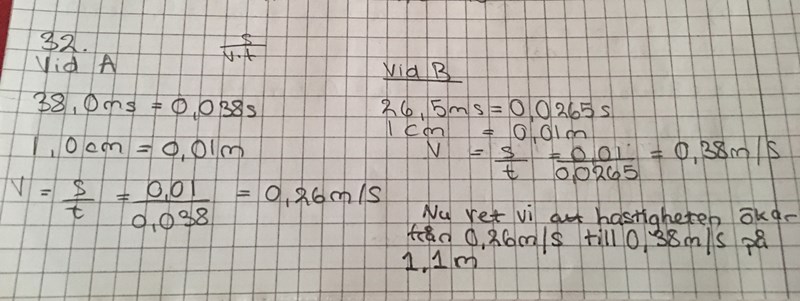 32.
Vid A
s/v·t
38,0ms = 0,038s
1,0cm = 0,01m
V = s/t = 0,01/0,038 = 0,26m/s
Vid B
26,5ms = 0,0265s
1cm = 0,01m
V = s/t = 0,01/0,0265 = 0,38m/s
Nu vet vi att hastigheten ökar
från 0,26m/s till 0,38m/s på
1,1m